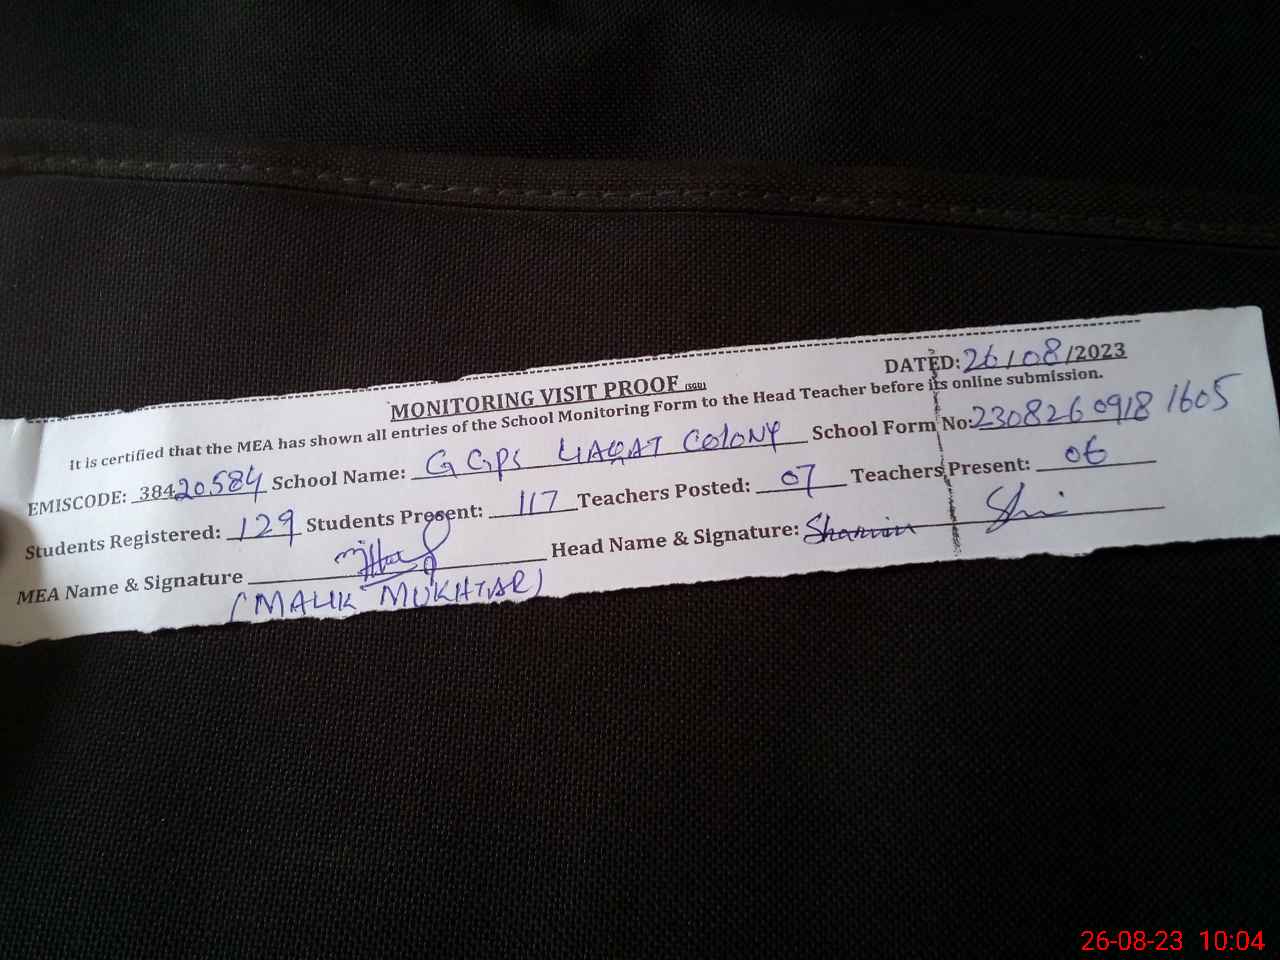 DATED: 26/08/2023
MONITORING VISIT PROOF (SGU)
It is certified that the MEA has shown all entries of the School Monitoring Form to the Head Teacher before its online submission.
EMISCODE: 38420584 School Name: GGPS LIAQAT COLONY School Form No: 2308260918 1605
Students Registered: 129 Students Present: 117 Teachers Posted: 07 Teachers Present: 06
MEA Name & Signature Head Name & Signature:
(MALIK MUKHTAR)
26-08-23 10:04